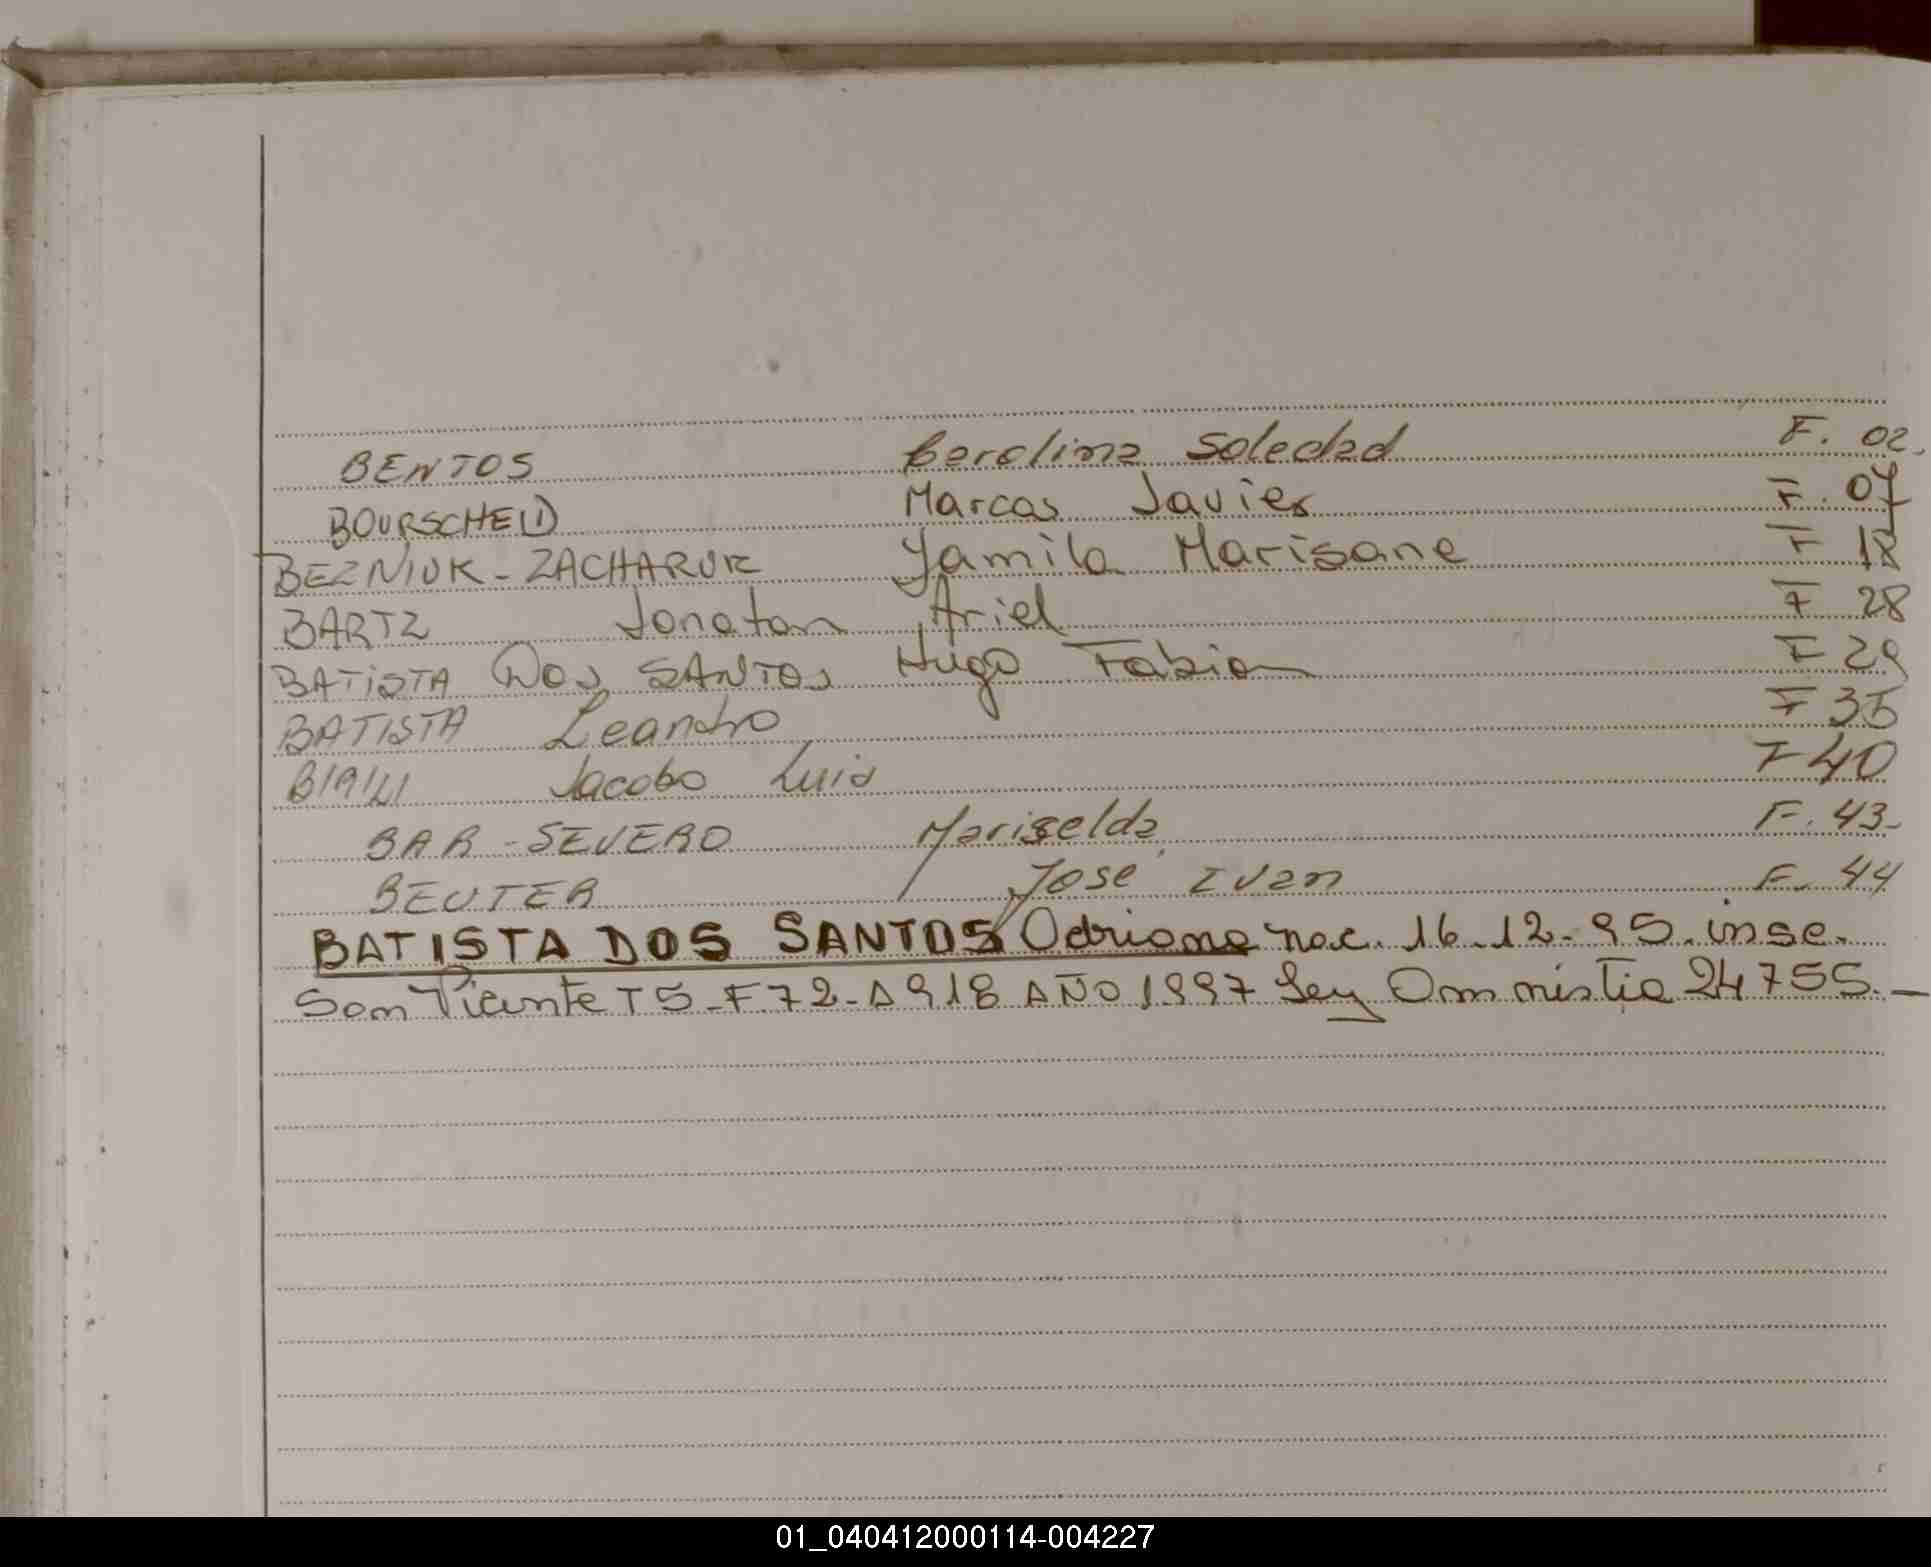 BENTOS Carolina Soledad F. 02.
BOURSCHEID Marcos Javier F. 07
BEZNIUK - ZACHARUK Yamila Marisane F 18
BARTZ Jonatan Ariel F 28
BATISTA Dos SANTOS Hugo Fabian F 29
BATISTA Leandro F 35
Jacobo Luis F 40
BAR - SEVERO Mariselda F. 43-
BEUTER José Ivan F. 44
BATISTA DOS SANTOS Adriana nac. 16-12-95. insc.
San Vicente T5-F72-A918 AÑO 1997 Ley Amnistia 24755.-
01_040412000114-004227